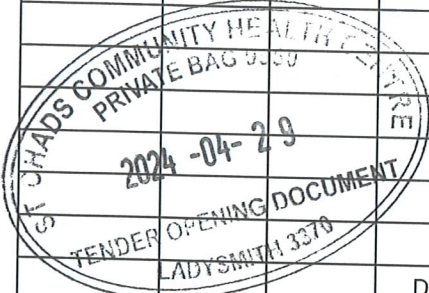 ST CHADS COMMUNITY HEALTH CENTRE
PRIVATE BAG
2024 -04- 29
TENDER OPENING DOCUMENT
LADYSMITH 3370
D